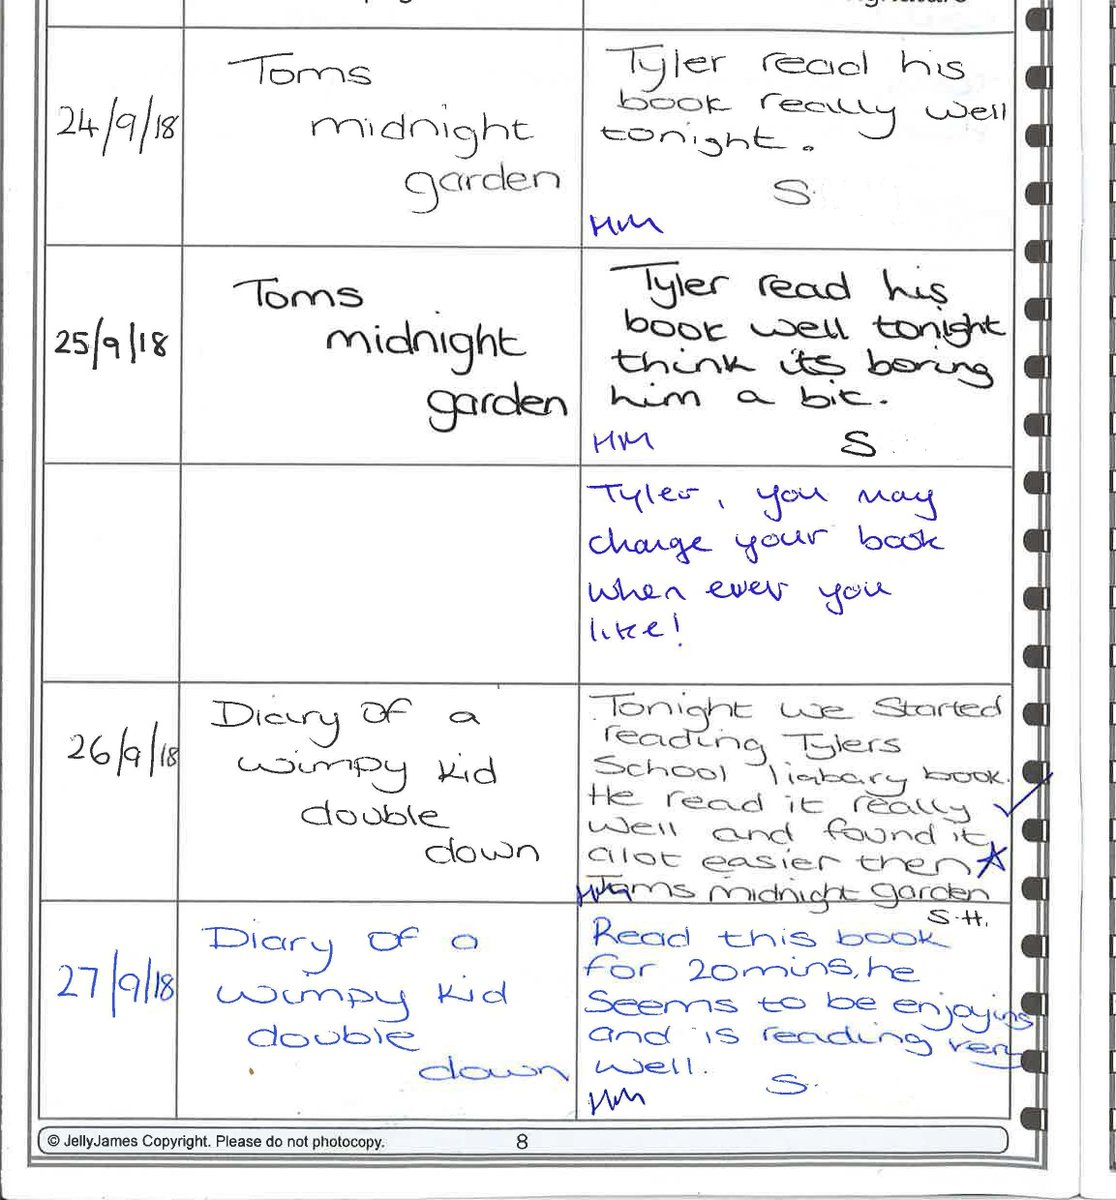 24/9/18
Toms
midnight
garden
Tyler read his
book really well
tonight.
S.
HM
25/9/18
Toms
midnight
garden
Tyler read his
book well tonight
think its boring
him a bit.
HM S.
Tyler, you may
change your book
when ever you
like!
26/9/18
Diary Of a
wimpy kid
double
down
Tonight we Started
reading Tylers
School liabary book.
He read it really
well and found it
alot easier then
Toms midnight garden
HM
S.H.
27/9/18
Diary Of a
wimpy kid
double
down
Read this book
for 20mins, he
Seems to be enjoying
and is reading very
well.
S.
HM
© JellyJames Copyright. Please do not photocopy.
8